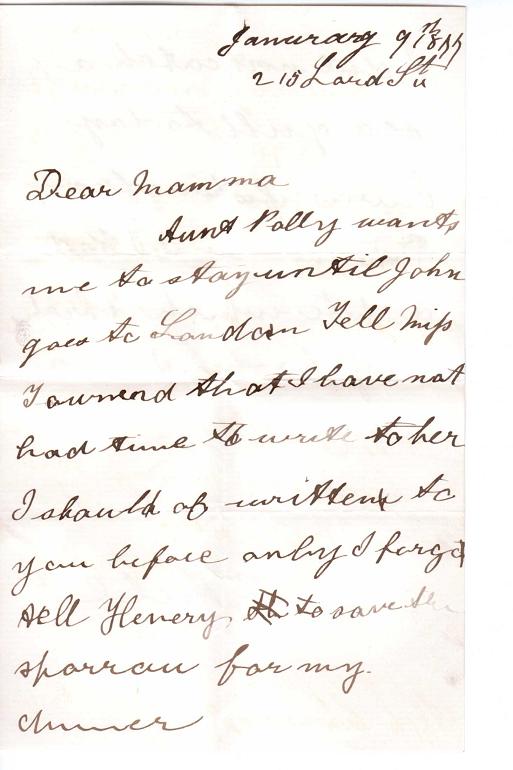 Janurary 9th 1877
215 Lord St
Dear Mamma
Aunt Polly wants
me to stay until John
goes to London Tell Miss
Townend that I have not
had time to write to her
I should of written to
you before only I forgot
tell Henery to save the
sparrow for my
dinner